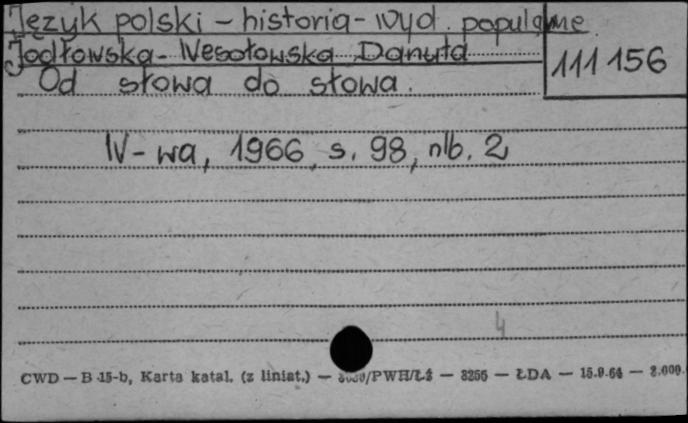 Język polski - historia - wyd. popularne
Jodłowska-Wesołowska Danuta
111 156
Od słowa do słowa.
W-wa, 1966, s. 98, nlb. 2
4
CWD — B 15-b, Karta katal. (z liniat.) — /PWH/Łż — 3256 — ŁDA — 15.9.64 —